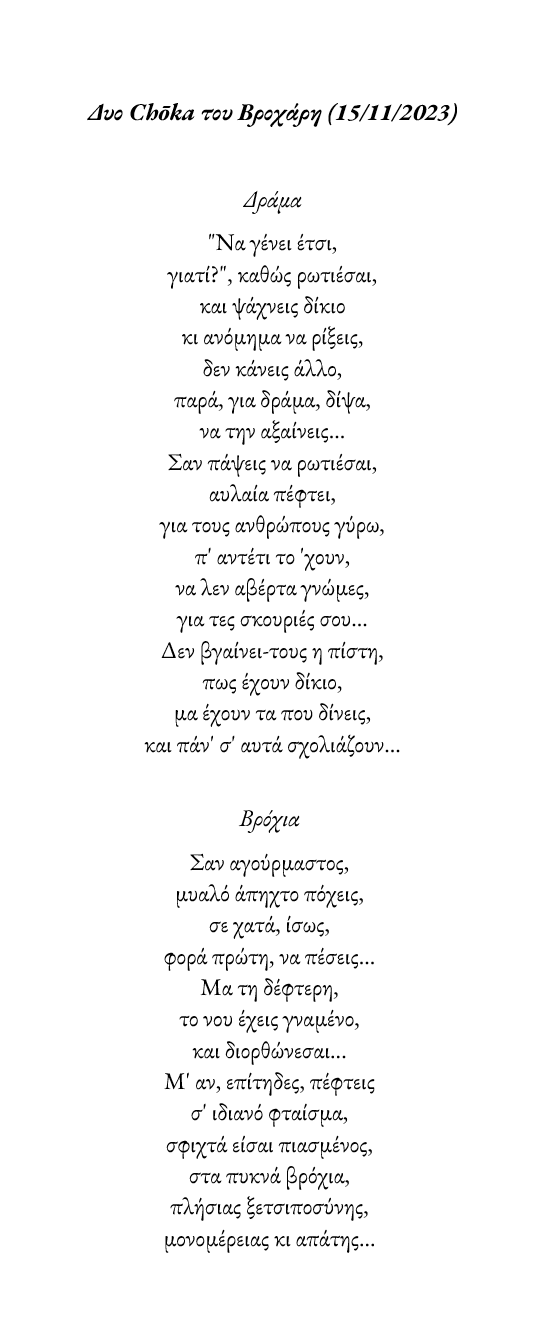 Δυο Chōka του Βροχάρη (15/11/2023)
Δράμα
"Να γένει έτσι,
γιατί?", καθώς ρωτιέσαι,
και ψάχνεις δίκιο
κι ανόμημα να ρίξεις,
δεν κάνεις άλλο,
παρά, για δράμα, δίψα,
να την αξαίνεις...
Σαν πάψεις να ρωτιέσαι,
αυλαία πέφτει,
για τους ανθρώπους γύρω,
π' αντέτι το 'χουν,
να λεν αβέρτα γνώμες,
για τες σκουριές σου...
Δεν βγαίνει-τους η πίστη,
πως έχουν δίκιο,
μα έχουν τα που δίνεις,
και πάν' σ' αυτά σχολιάζουν...
Βρόχια
Σαν αγούρμαστος,
μυαλό άπηχτο πόχεις,
σε χατά, ίσως,
φορά πρώτη, να πέσεις...
Μα τη δέφτερη,
το νου έχεις γναμένο,
και διορθώνεσαι...
Μ' αν, επίτηδες, πέφτεις
σ' ιδιανό φταίσμα,
σφιχτά είσαι πιασμένος,
στα πυκνά βρόχια,
πλήσιας ξετσιποσύνης,
μονομέρειας κι απάτης...